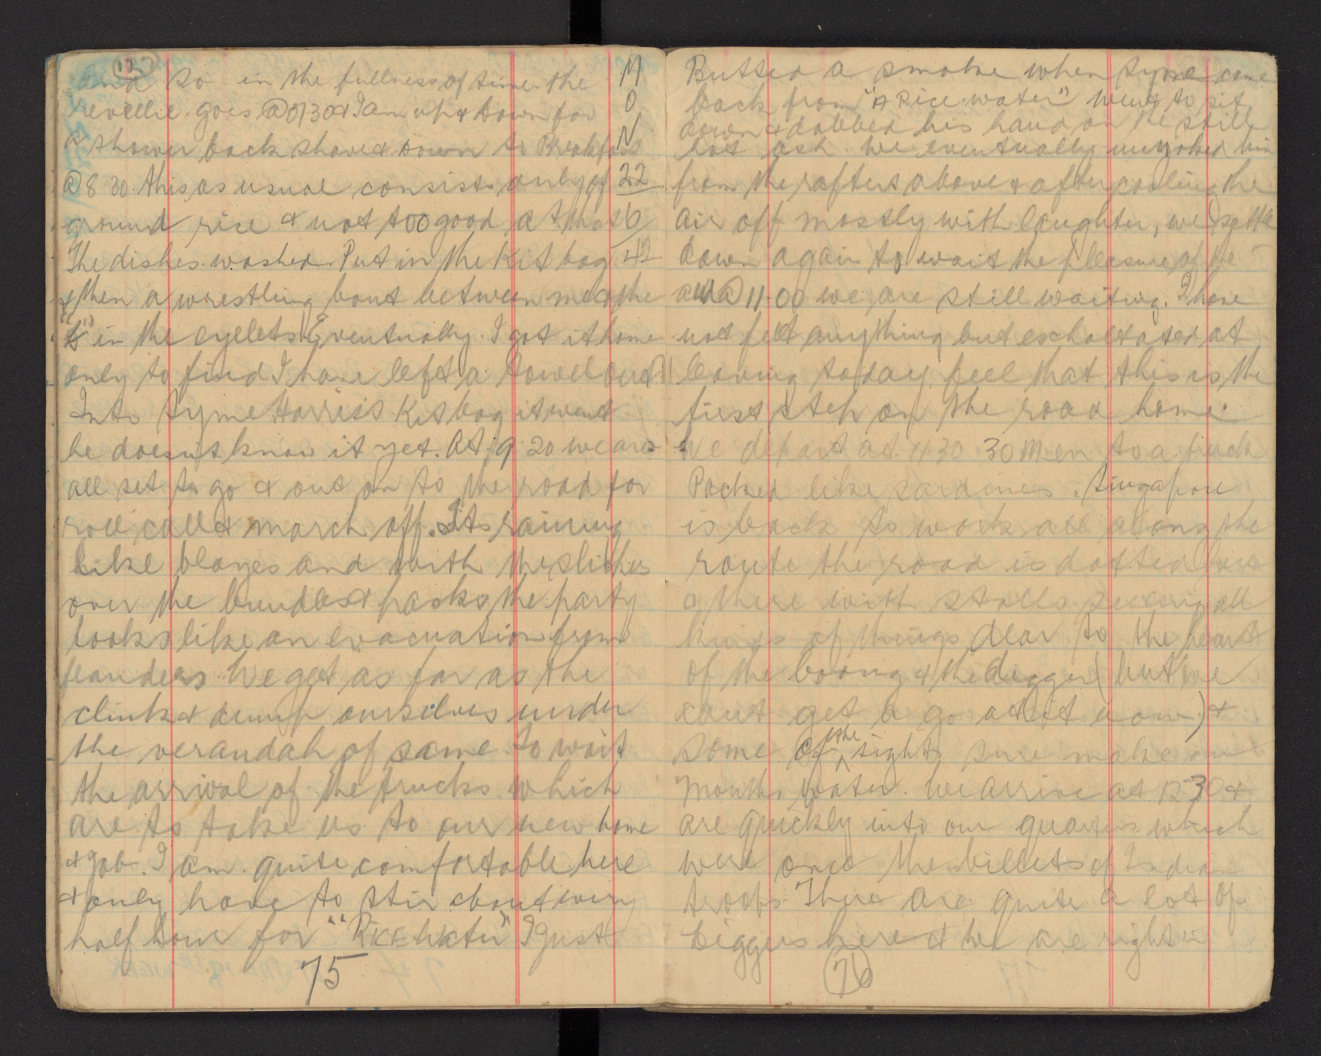 127
and so in the fullness of time the
revellie goes @ 0730 & I am up & down for
a shower back shave & down to Breakfast
@ 8 30 this as usual consists only of
ground rice & not too good at this
The dishes washed. Put in the Kit bag
& then a wrestling bout between me & the
"s" in the eyelets. Eventually I got it home
only to find I have left a towel out
Into Syme Harriss Kitbag it went
he doesn't know it yet. At 9 20 we are
all set to go & out on to the road for
roll call & march off. Its raining
like blazes and with the
over the bundles & packs the party
looks like an evacuation from
We get as far as the
& dump ourselves under
the verandah of same to wait
the arrival of the trucks which
are to take us to our new home
& job. I am quite comfortable here
& only have to stir about every
half hour for "RICE WATER" I just
75
M
O
N
22
6
42
Butted a smoke when Syme came
back from "A Rice water" went to sit
down & dabbed his hand on the still
hot ash we eventually him
from the rafters above & after cooling the
air off mostly with laughter, we settle
down again to wait the pleasure of the
@ 11-00 we are still waiting. I have
not felt anything but at
leaving today feel that this is the
first step on the road home.
We depart at 1130 30 men to a truck
Packed like sardines. Singapore
is back to work all along the
route the road is dotted here
& there with stalls all
kinds of things dear to the heart
of the boong & the digger (but we
cant get a go at it now) &
some of the sights sure make our
mouths water. We arrive at 1230 &
are quickly into our quarters which
were once the billets of Indian
troops. There are quite a lot of
here & we are right
76